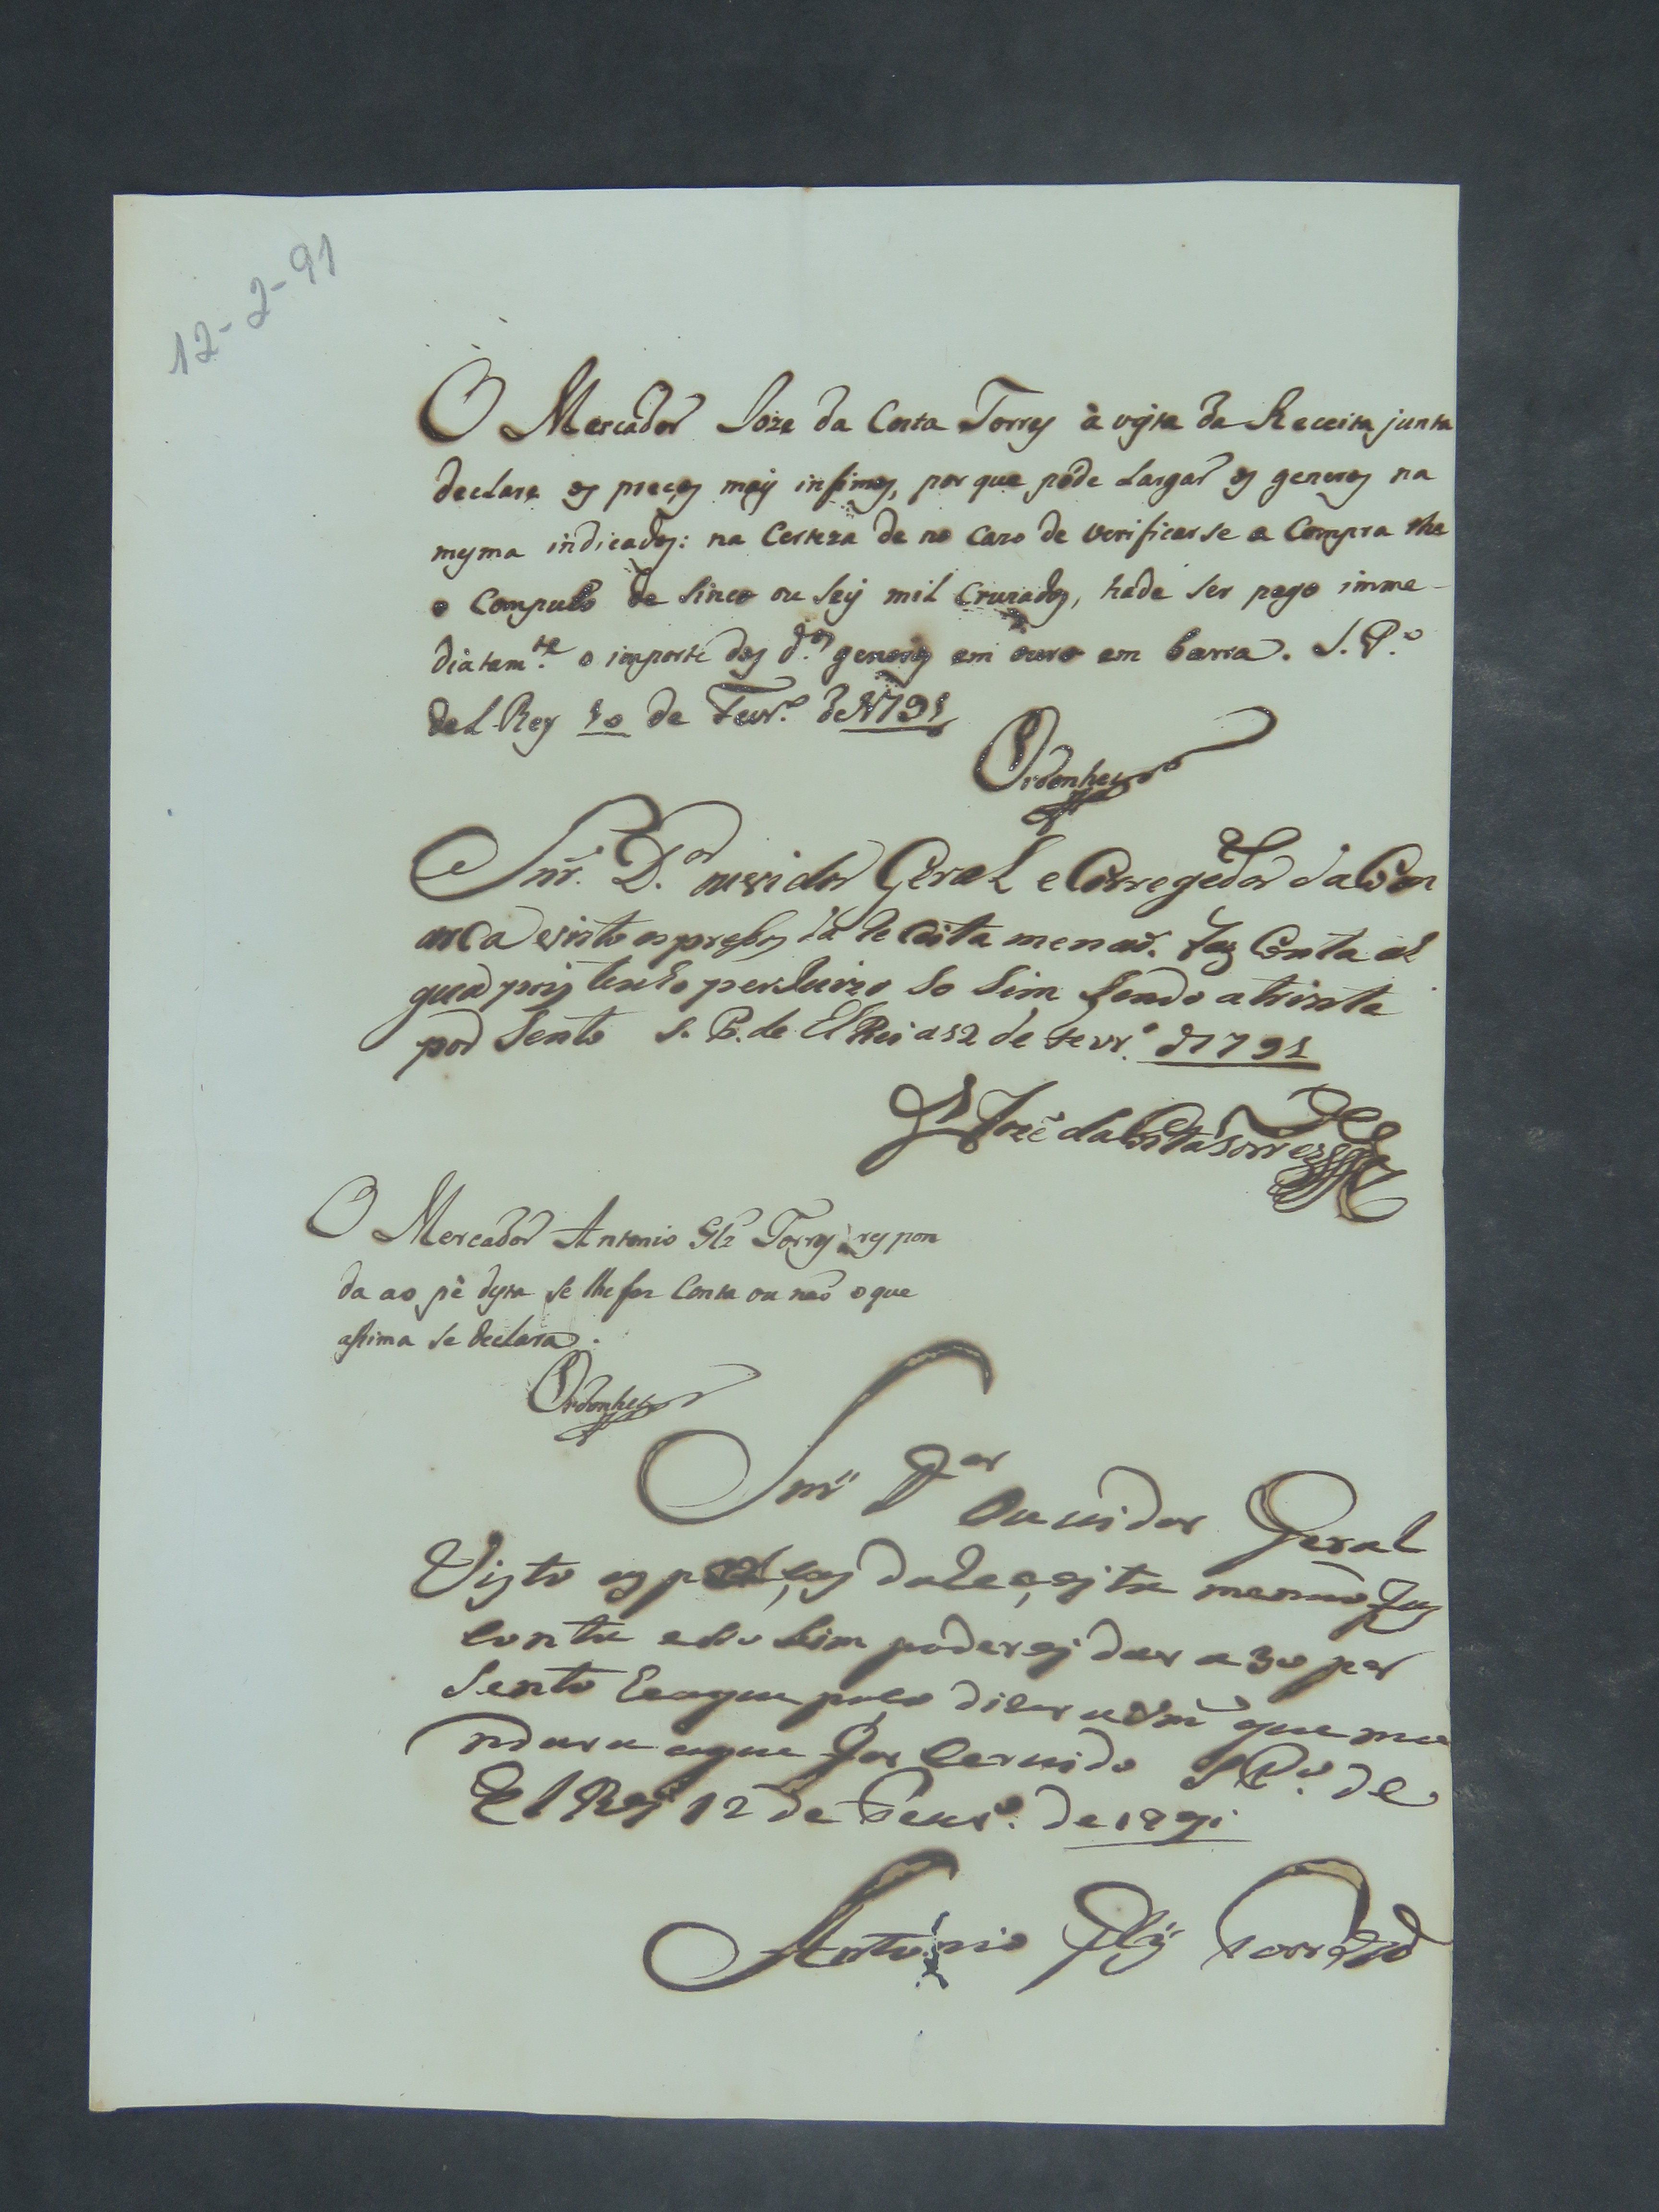 12-2-91
O Mercador Joze da Costa Torres à vista da Receita junta
declare os preços mais infimos, por que póde largar os generos na
mesma indicados: na certeza de no cazo de verificarse a compra the
o computo de sinco ou seis mil cruzados, hade ser pago imme-
diatam.te o importe dos d.os generos em ouro em barra. S. P.o
del Rey 10 de Fevr.o de 1791
Ordonhes
Snr. D.or ouvidor Geral e Corregedor da Com
arca visto os preços da Receita me naõ faz Conta al
gua pois tenho perJuizo so sim sendo a trinta
por Sento S. P. de ElRei a 12 de Fevr.o d 1791
Jozé da Costa Torres
O Mercador Antonio Glz Torres respon
da ao pé desta se lhe faz conta ou naõ o que
assima se declara.
Ordonhes
Snr D.or Ouuidor Geral
Visto os preços da Receita me naõ Faz
conta e so sim poderej dar a 30 por
Sento he o que poso dizer a Vm.ce que ma
ndara o que For Seruido S P.o de
El Rej 12 de Feur.o de 1791
Antonio Glz Torres